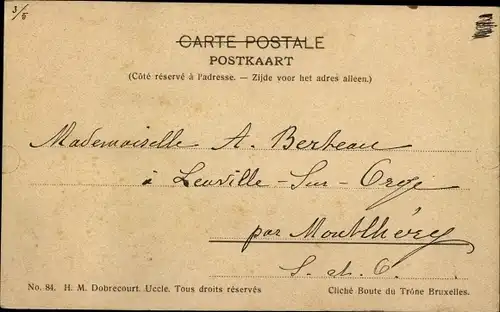 3/5
CARTE POSTALE
POSTKAART
(Côté réservé à l'adresse. — Zijde voor het adres alleen.)
Mademoiselle A. Berteau
à Leuville-Sur-Orge
par Montlhéry
S. et. O.
No. 84. H. M. Dobrecourt. Uccle. Tous droits réservés
Cliché Boute du Trône Bruxelles.